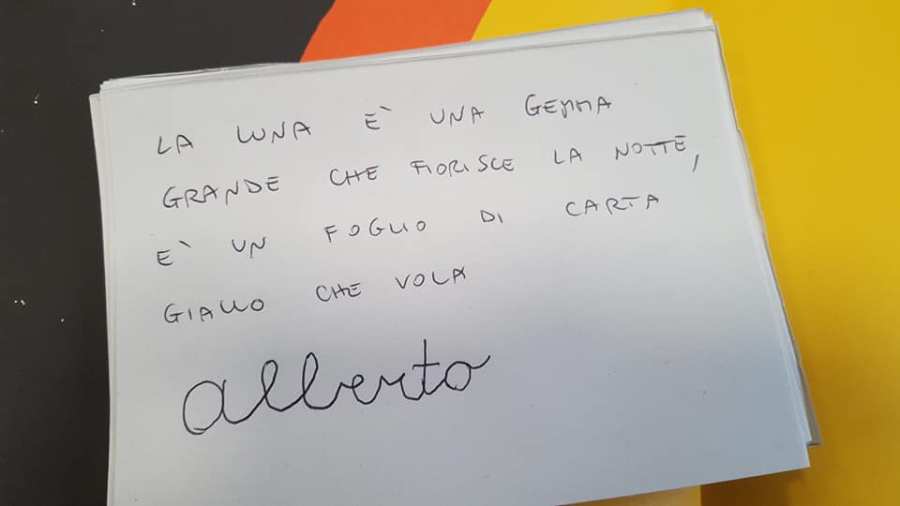 LA LUNA È UNA GEMMA
GRANDE CHE FIORISCE LA NOTTE,
E' UN FOGLIO DI CARTA
GIALLO CHE VOLA
alberto